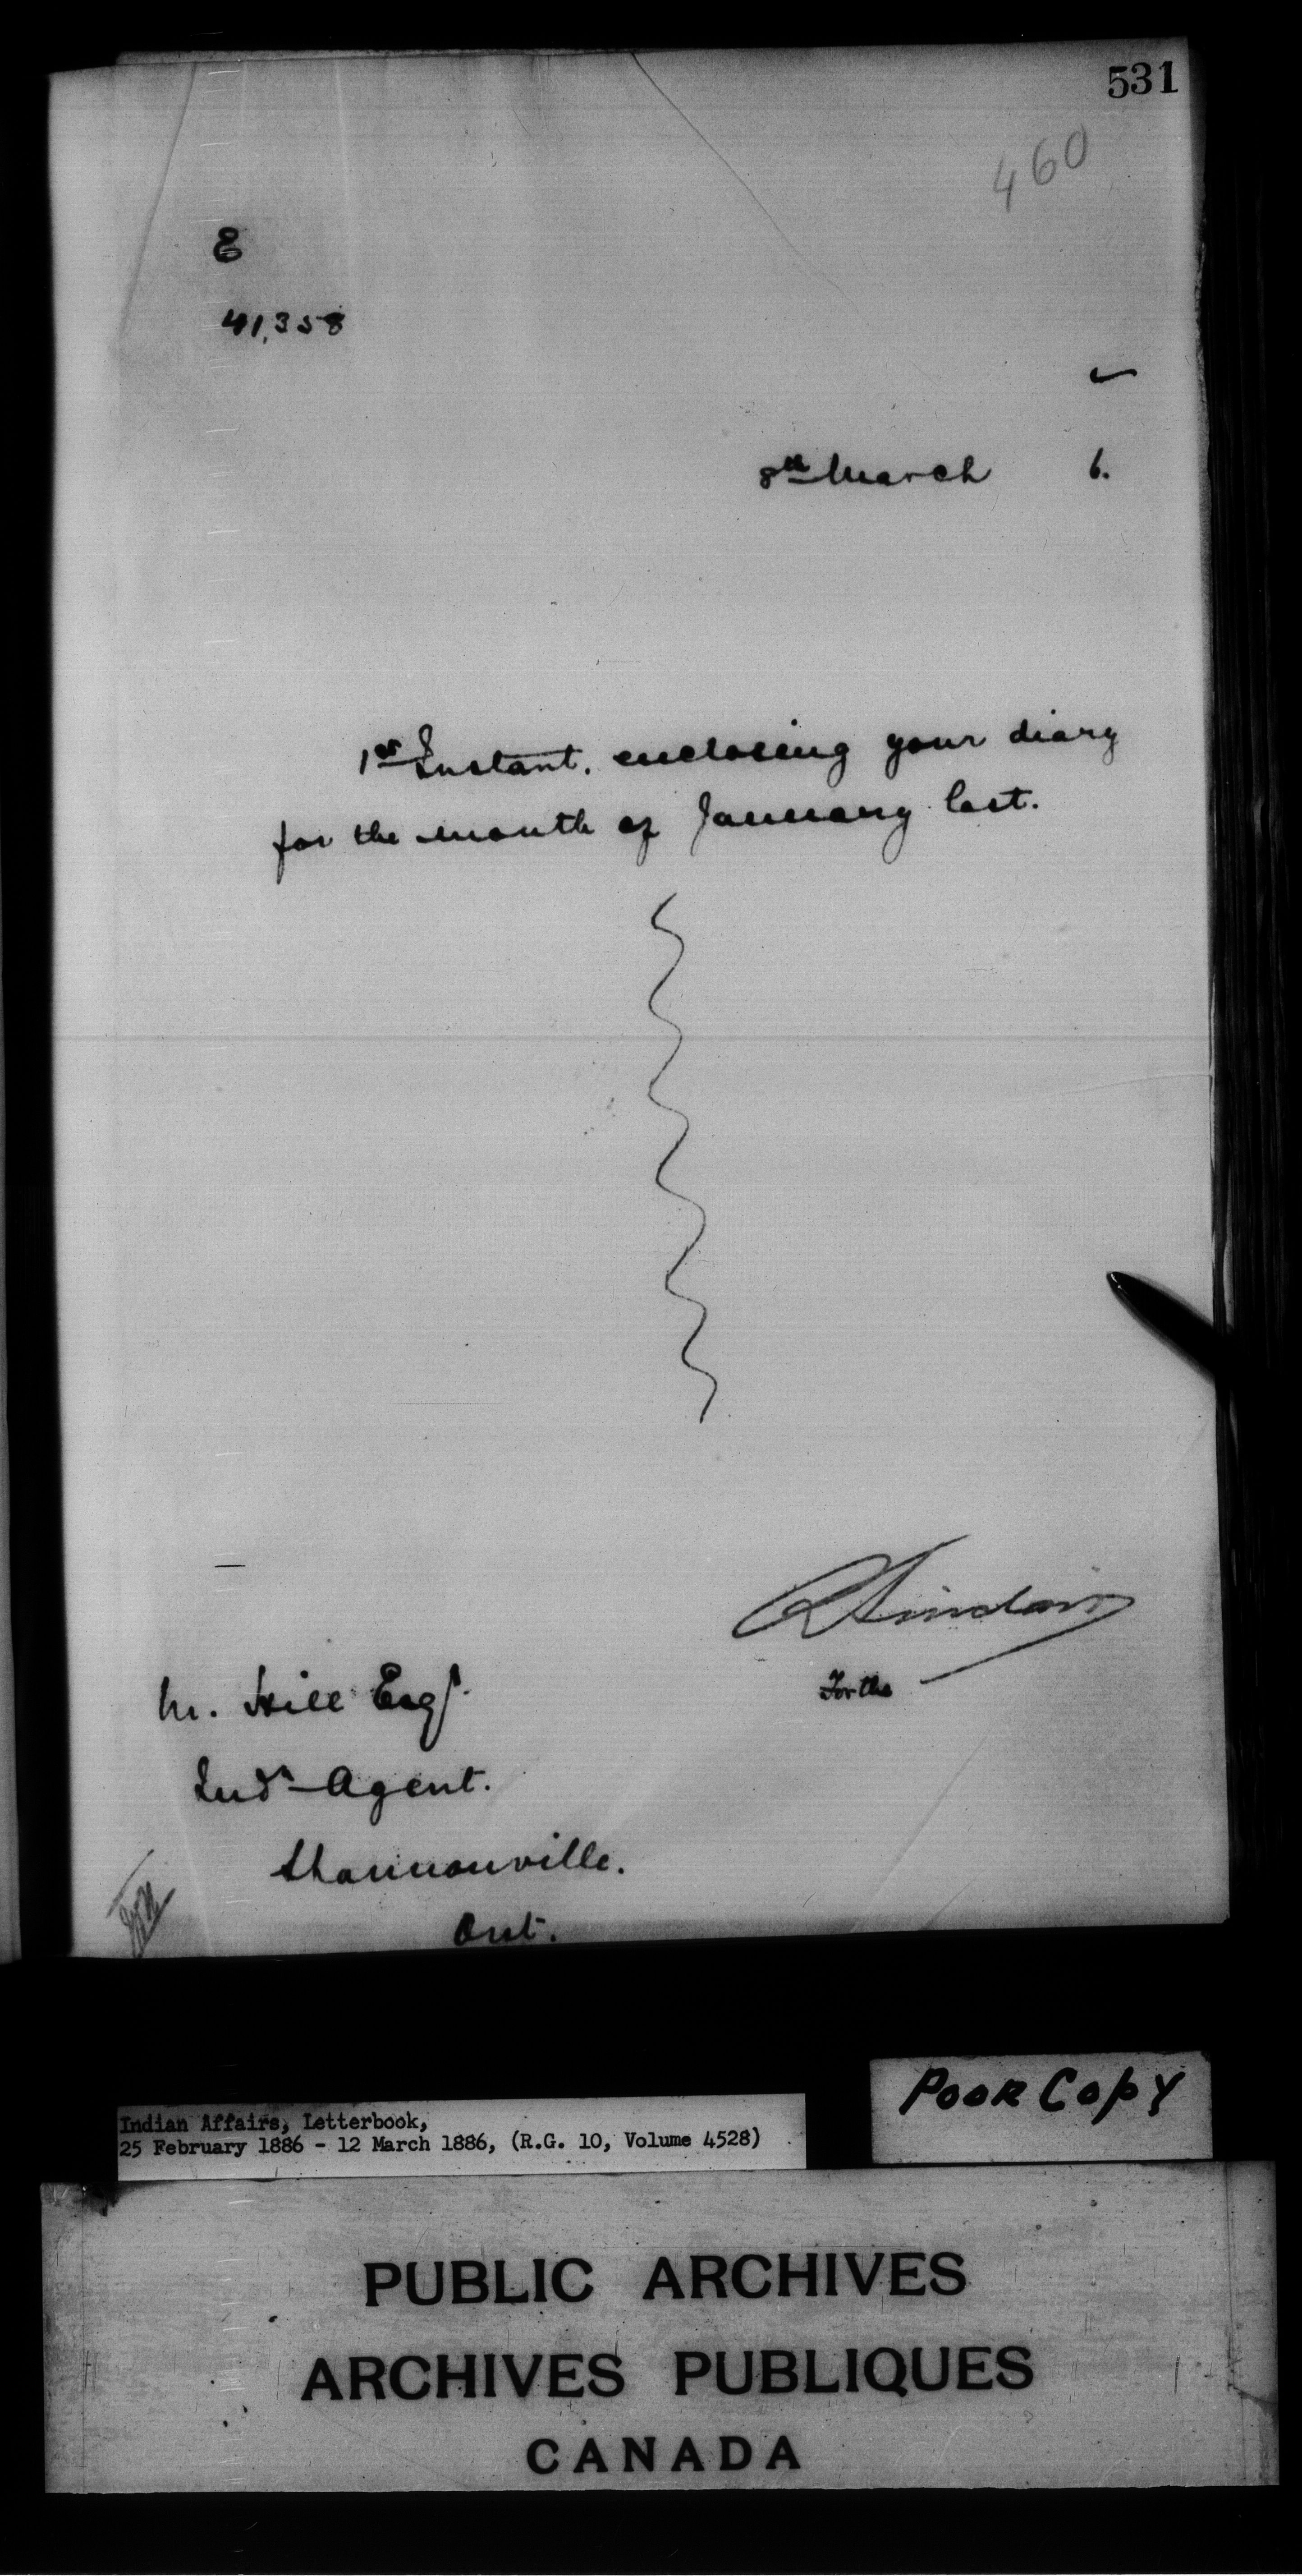 531
460
E
41,358
8th March 6.
1st Instant. enclosing your diary
for the month of January last.
R Sinclair
For the
M. Hill Esqr.
Indn Agent.
Shannonville.
Ont.
Poor Copy
Indian Affairs, Letterbook,
25 February 1886 - 12 March 1886, (R.G. 10, Volume 4528)
PUBLIC ARCHIVES
ARCHIVES PUBLIQUES
CANADA